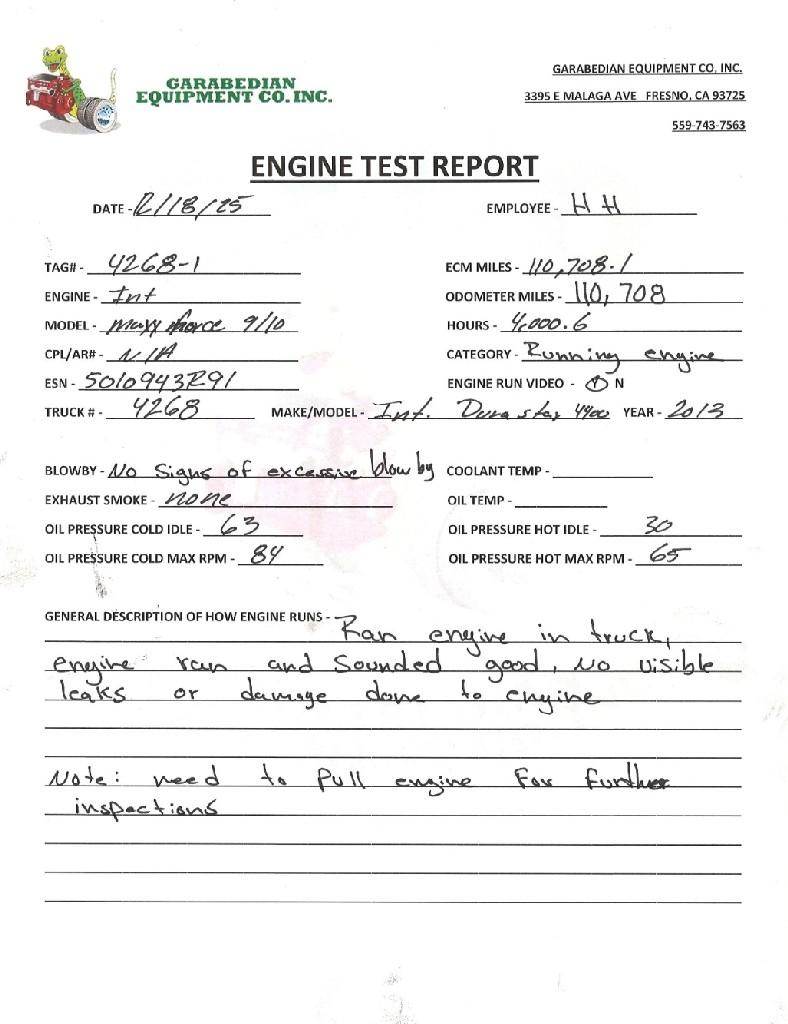 GARABEDIAN
EQUIPMENT CO. INC.
GARABEDIAN EQUIPMENT CO, INC.
3395 E MALAGA AVE FRESNO, CA 93725
559-743-7563
ENGINE TEST REPORT
DATE - 12/18/25 EMPLOYEE - HH
TAG# - 4268-1 ECM MILES - 110,708.1
ENGINE - Int ODOMETER MILES - 110,708
MODEL - Maxx force 9/10 HOURS - 4,000.6
CPL/AR# - N/A CATEGORY - Running engine
ESN - 5010943R91 ENGINE RUN VIDEO - Y N
TRUCK # - 4268 MAKE/MODEL - Int. Durastar 4400 YEAR - 2013
BLOWBY - No signs of excessive blow by COOLANT TEMP -
EXHAUST SMOKE - none OIL TEMP -
OIL PRESSURE COLD IDLE - 63 OIL PRESSURE HOT IDLE - 30
OIL PRESSURE COLD MAX RPM - 84 OIL PRESSURE HOT MAX RPM - 65
GENERAL DESCRIPTION OF HOW ENGINE RUNS - Ran engine in truck,
engine ran and sounded good, No visible
leaks or damage done to engine
Note: need to pull engine for further
inspections